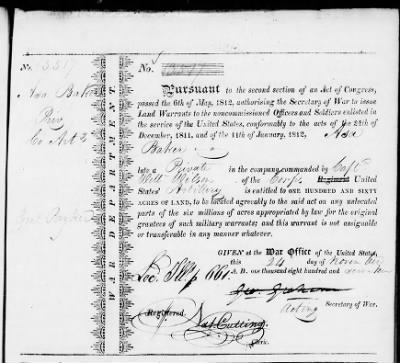 No.
No.
Asa Baker
Priv
Co Art 2
WAR DEPARTMENT.
Pursuant to the second section of an Act of Congress,
passed the 6th of May, 1812, authorising the Secretary of War to issue
Land Warrants to the noncommissioned Officers and Soldiers enlisted in
the service of the United States, conformably to the acts of the 24th of
December, 1811, and of the 11th of January, 1812, Asa
Baker
late a Private in the company commanded by Capt
Will Wilson of the Corps Regiment
States' Artillery is entitled to ONE HUNDRED AND SIXTY
ACRES OF LAND, to be located agreeably to the said act on any unlocated
parts of the six millions of acres appropriated by law for the original
grantees of such military warrants; and this warrant is not assignable
or transferable in any manner whatever.
GIVEN at the War Office of the United States,
this 24 day of
A. D. one thousand eight hundred and
Geo. Graham
Acting Secretary of War.
Registered.
Nat Cutting.
Clerk.